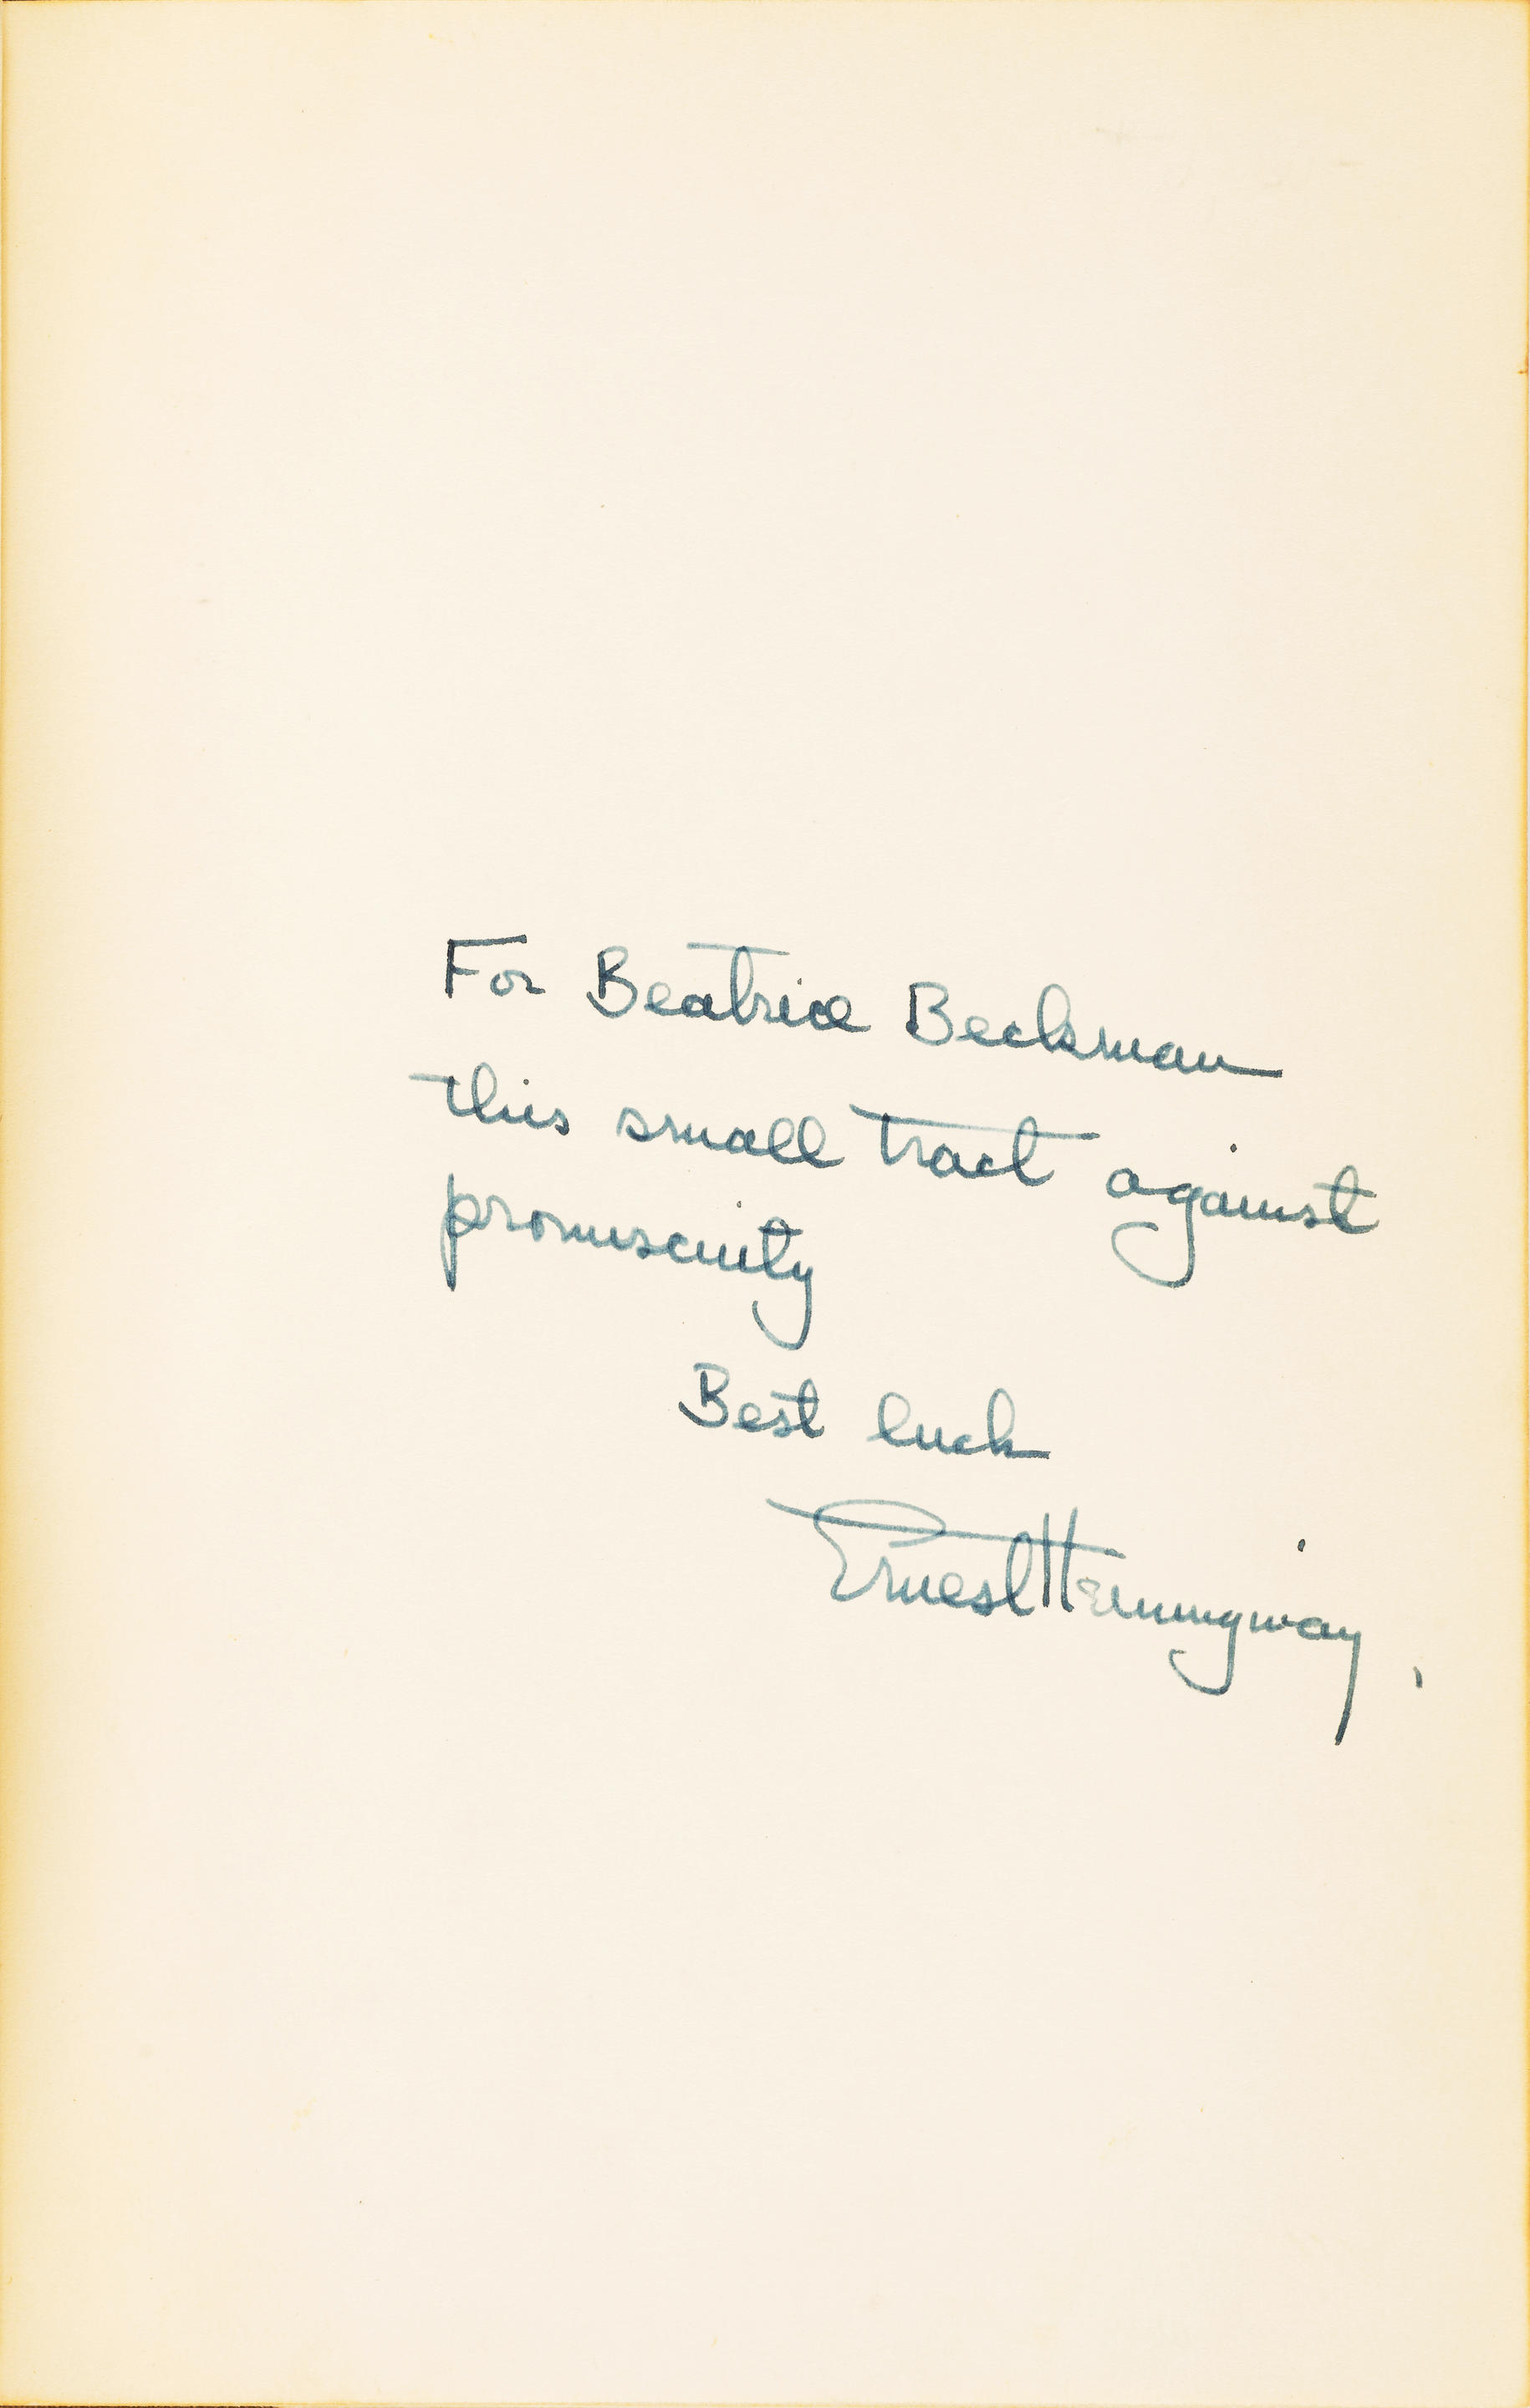 For Beatrice Beckman
this small tract against
promiscuity
Best luck
Ernest Hemingway.